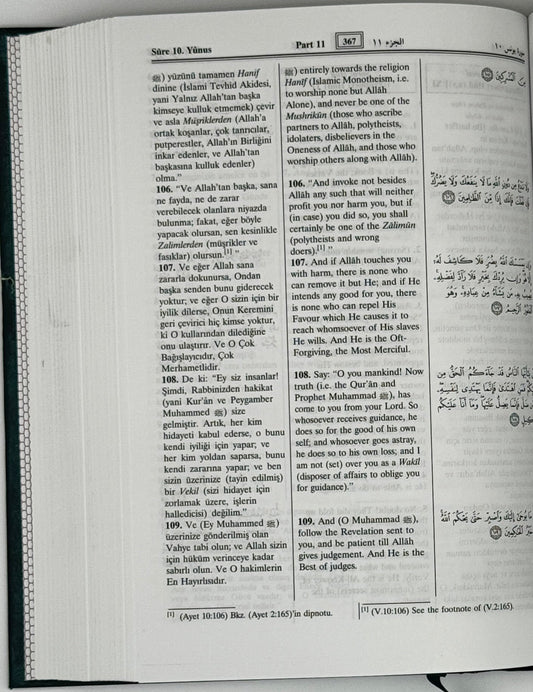 Sûre 10. Yûnus
Part 11
367
الجزء ١١
سورة يونس ١٠
ﷺ) yüzünü tamamen Hanif
dinine (İslami Tevhid Akidesi,
yani Yalnız Allah'tan başka
kimseye kulluk etmemek) çevir
ve asla Müşriklerden (Allah'a
ortak koşanlar, çok tanrıcılar,
putperestler, Allah'ın Birliğini
inkar edenler, ve Allah'tan
başkasına kulluk edenler)
olma."
106. “Ve Allah'tan başka, sana
ne fayda, ne de zarar
verebilecek olanlara niyazda
bulunma; fakat, eğer böyle
yapacak olursan, sen kesinlikle
Zalimlerden (müşrikler ve
fasıklar) olursun.[1] ”
107. Ve eğer Allah sana
zararla dokunursa, Ondan
başka senden bunu giderecek
yoktur; ve eğer O sizin için bir
iyilik dilerse, Onun Keremini
geri çevirici hiç kimse yoktur,
ki O kullarından dilediğine
onu ulaştırır. Ve O Çok
Bağışlayıcıdır, Çok
Merhametlidir.
108. De ki: “Ey siz insanlar!
Şimdi, Rabbinizden hakikat
(yani Kur'ân ve Peygamber
Muhammed ﷺ) size
gelmiştir. Artık, her kim
hidayeti kabul ederse, o bunu
kendi iyiliği için yapar; ve
her kim yoldan saparsa, bunu
kendi zararına yapar; ve ben
sizin üzerinize (tayin edilmiş)
bir Vekil (sizi hidayet için
zorlamak üzere, işlerin
halledicisi) değilim.”
109. Ve (Ey Muhammed ﷺ)
üzerinize gönderilmiş olan
Vahye tabi olun; ve Allah sizin
için hüküm verinceye kadar
sabırlı olun. Ve O hakimlerin
En Hayırlısıdır.
[1] (Ayet 10:106) Bkz. (Ayet 2:165)'in dipnotu.
ﷺ) entirely towards the religion
Hanîf (Islamic Monotheism, i.e.
to worship none but Allâh
Alone), and never be one of the
Mushrikûn (those who ascribe
partners to Allâh, polytheists,
idolaters, disbelievers in the
Oneness of Allâh, and those who
worship others along with Allâh).
106. “And invoke not besides
Allâh any such that will neither
profit you nor harm you, but if
(in case) you did so, you shall
certainly be one of the Zâlimûn
(polytheists and wrong
doers).[1] ”
107. And if Allâh touches you
with harm, there is none who
can remove it but He; and if He
intends any good for you, there
is none who can repel His
Favour which He causes it to
reach whomsoever of His slaves
He wills. And He is the Oft-
Forgiving, the Most Merciful.
108. Say: “O you mankind! Now
truth (i.e. the Qur'ân and
Prophet Muhammad ﷺ), has
come to you from your Lord. So
whosoever receives guidance, he
does so for the good of his own
self; and whosoever goes astray,
he does so to his own loss; and I
am not (set) over you as a Wakîl
(disposer of affairs to oblige you
for guidance).”
109. And (O Muhammad ﷺ),
follow the Revelation sent to
you, and be patient till Allâh
gives judgement. And He is the
Best of judges.
[1] (V.10:106) See the footnote of (V.2:165).
مِنَ الْمُشْرِكِينَ
وَلَا تَدْعُ مِن دُونِ اللَّهِ مَا لَا يَنفَعُكَ وَلَا يَضُرُّكَ
فَإِن فَعَلْتَ فَإِنَّكَ إِذًا مِّنَ الظَّالِمِينَ
يَمْسَسْكَ اللَّهُ بِضُرٍّ فَلَا كَاشِفَ لَهُ
هُوَ وَإِن يُرِدْكَ بِخَيْرٍ فَلَا رَادَّ لِفَضْلِهِ
بِهِ مَن يَشَاءُ مِنْ عِبَادِهِ وَهُوَ
الرَّحِيمُ
يَا أَيُّهَا النَّاسُ قَدْ جَاءَكُمُ الْحَقُّ مِن
فَمَنِ اهْتَدَىٰ فَإِنَّمَا يَهْتَدِي لِنَفْسِهِ
ضَلَّ فَإِنَّمَا يَضِلُّ عَلَيْهَا وَمَا أَنَا عَلَيْكُم
مَا يُوحَىٰ إِلَيْكَ وَاصْبِرْ حَتَّىٰ يَحْكُمَ اللَّهُ
خَيْرُ الْحَاكِمِينَ